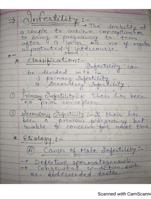 Infertility :-
The inability of
a couple to achieve conception
to bring a pregnancy to term
after a year or more of regular
unprotected intercourse.
Classification :-
Infertility can
be divided into two
① Primary Infertility
② Secondary Infertility
Primary Infertility :- There has been
no prior conception.
Secondary Infertility :- There has
been a previous pregnancy but
unable to conceive
Etiology :-
Causes of Male Infertility :-
Defective spermatogenesis
Congenital
undescended testes
Scanned with CamScanner